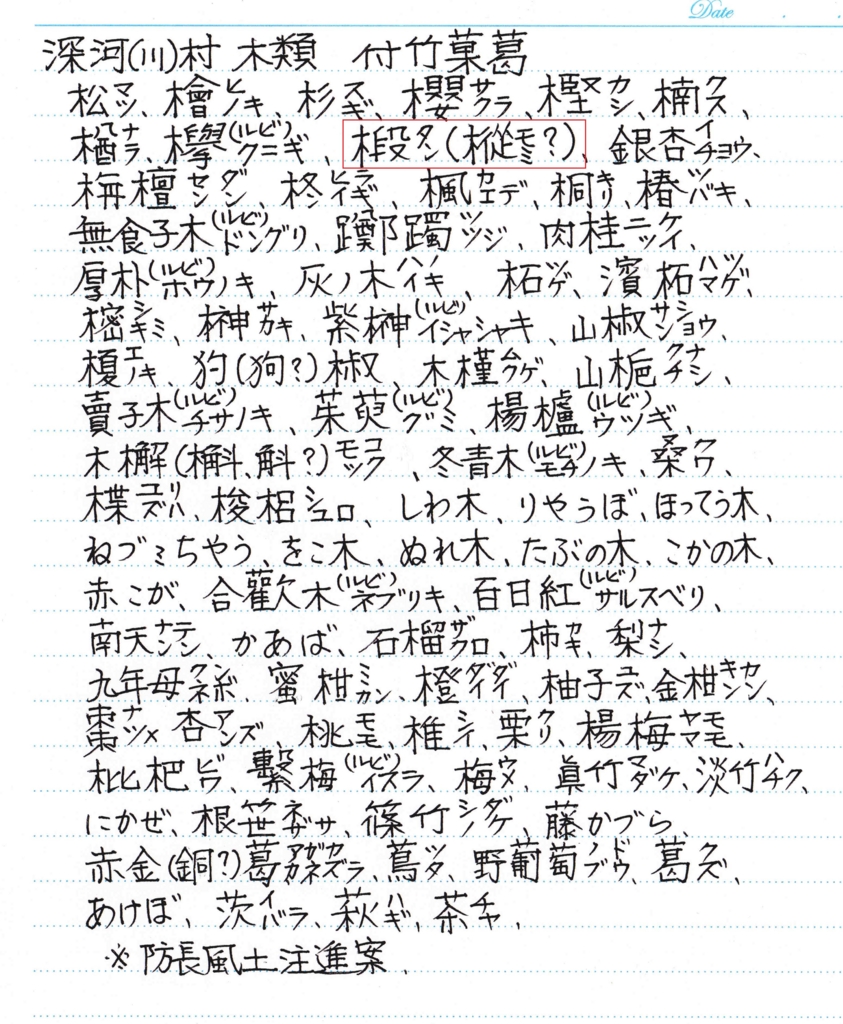 Date
深河(川)村 木類 付竹菓葛
松マツ、檜ヒノキ、杉スギ、櫻サクラ、樫カシ、楠クス、
楢ナラ、櫸(ルビ)クニギ、椴タン(樅モミ?)、銀杏イチョウ、
栴檀センダン、柊ヒイラギ、楓カエデ、桐キリ、椿ツバキ、
無食子木(ルビ)ドングリ、躑躅ツツジ、肉桂ニッケイ、
厚朴(ルビ)ホウノキ、灰ノ木ハイノキ、柘ツゲ、濱柘ハマツゲ、
樒シキミ、榊サカキ、紫榊(ルビ)イシャシャキ、山椒サンショウ、
榎エノキ、犳(狗?)椒、木槿ムクゲ、山梔クチナシ、
賣子木(ルビ)チサノキ、茱萸(ルビ)グミ、楊櫨(ルビ)ウツギ、
木檞(槲、斛?)モッコク、冬青木(ルビ)モチノキ、桑クワ、
楪ユズリハ、梭梠シュロ、しわ木、りやうぼ、ほってう木、
ねづミちやう、をこ木、ぬれ木、たぶの木、こかの木、
赤こが、合歡木(ルビ)ネブリキ、百日紅(ルビ)サルスベリ、
南天ナンテン、かあば、石榴ザクロ、柿カキ、梨ナシ、
九年母クネンボ、蜜柑ミカン、橙ダイダイ、柚子ユズ、金柑キンカン、
棗ナツメ、杏アンズ、桃モモ、椎シイ、栗クリ、楊梅ヤマモモ、
枇杷ビワ、繋梅(ルビ)イスラ、梅ウメ、眞竹マダケ、淡竹ハチク、
にかぜ、根笹ネザサ、篠竹シノダケ、藤かづら、
赤金(銅?)葛アカガネカズラ、蔦ツタ、野葡萄ノブドウ、葛クズ、
あけぼ、茨イバラ、萩ハギ、茶チャ、
※防長風土注進案、